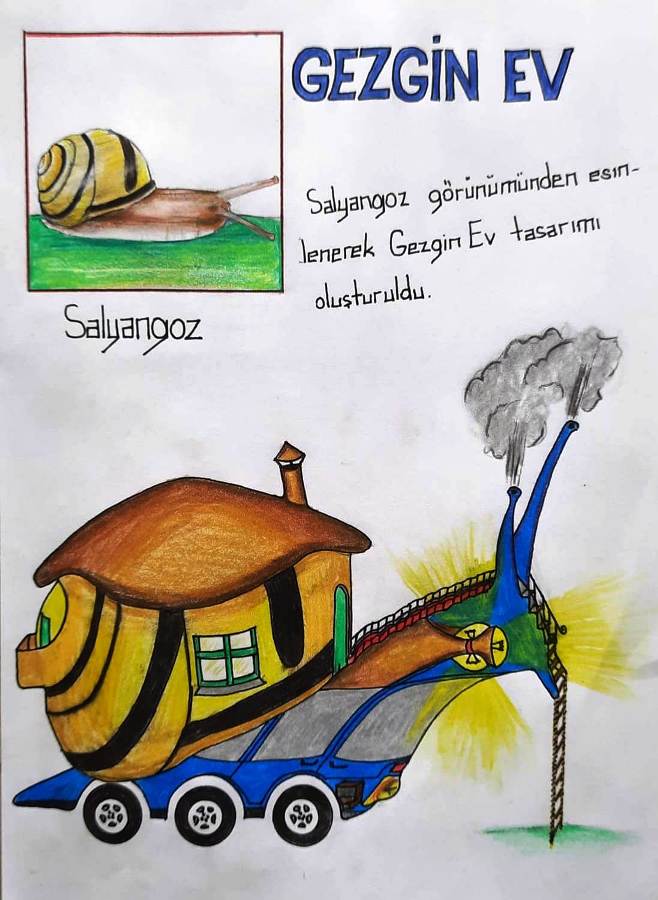 GEZGİN EV
Salyangoz görünümünden esin-
lenerek Gezgin Ev tasarımı
oluşturuldu.
Salyangoz